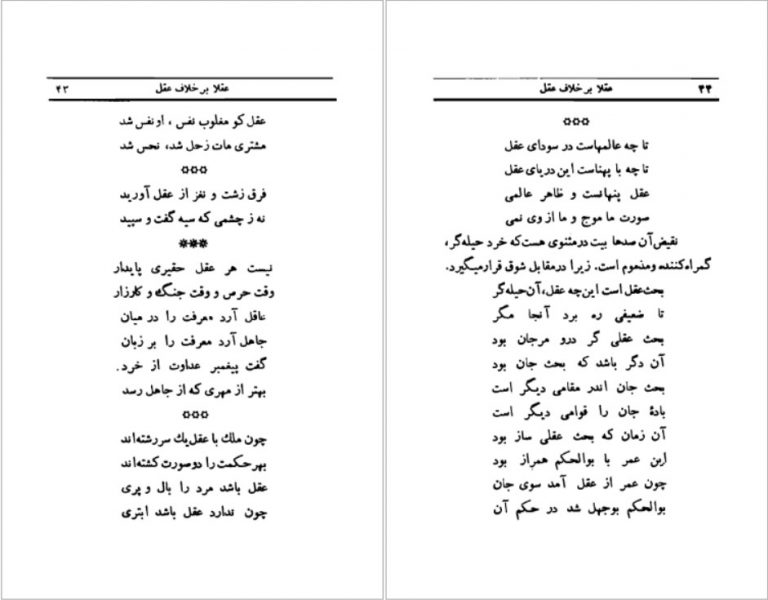 عقلا بر خلاف عقل ۴۳
عقل کو مغلوب نفس ، او نفس شد
مشتری مات زحل شد، نحس شد
فرق زشت و نغز از عقل آورید
نه ز چشمی که سیه گفت و سپید
نیست هر عقل حقیری پایدار
وقت حرص و وقت جنگ و کارزار
عاقل آرد معرفت را در میان
جاهل آرد معرفت را بر زبان
گفت پیغمبر عداوت از خرد.
بهتر از مهری که از جاهل رسد
چون ملك با عقل یك سررشته‌اند
بهر حکمت را دو صورت کشته‌اند
عقل باشد مرد را بال و پری
چون ندارد عقل باشد ابتری
۴۴ عقلا بر خلاف عقل
تا چه عالمهاست در سودای عقل
تا چه با پهناست این دریای عقل
عقل پنهانست و ظاهر عالمی
صورت ما موج و ما از وی نمی
نقیض آن صدها بیت در مثنوی هست که خرد حیله‌گر،
گمراه‌کننده و مذموم است. زیرا در مقابل شوق قرار میگیرد.
بحث عقل است این چه عقل، آن حیله‌گر
تا ضعیفی ره برد آنجا مگر
بحث عقلی گر درو مرجان بود
آن دگر باشد که بحث جان بود
بحث جان اندر مقامی دیگر است
بادهٔ جان را قوامی دیگر است
آن زمان که بحث عقلی ساز بود
این عمر با بوالحکم همراز بود
چون عمر از عقل آمد سوی جان
بوالحکم بوجهل شد در حکم آن